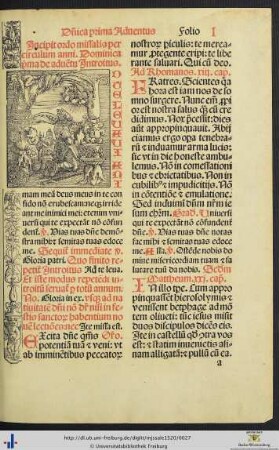 Dñica prima Aduentus Folio I
Incipit ordo missalis per
circulum anni. Dominica
prima de aduẽtu Introitus.
mam meã deus meus in te con
fido nõ erubescam: neqz irride
ant me inimici mei: etenim vni
uersi qui te expectãt nõ cõfun
dent. Vias tuas dñe demõ
stra mihi: et semitas tuas edoce
me. Sequit̃ immediate
Gloria patri. Quo finito re
petit̃ Introitus Ad te leua.
Et iste modus repetẽdi in
troitũ seruat̃ p totũ annum.
No. Gloria in ex. vsqz ad na
tiuitatẽ dñi nõ dr̃ nisi in fe
stis sanctorũ habentium no
uẽ lectiones nec Ite missa est.
Excita dñe q̃sũs Oro.
potentiã tuã et veni: vt
ab imminẽtibus peccatorum
nostrorum piculis: te merea
mur ptegente eripi: te libe
rante saluari. Qui cũ deo
Ad Rhomanos. xiij. cap.
Fratres. Scientes q̃a
hora est iam nos de so
mno surgere. Nunc eñ pro
pe est nostra salus q̃ cũ cre
didimus. Nox p̃cessit: dies
aũt appropinquauit. Abij
ciamus ergo opa tenebra
rũ: et induamur arma lucis:
sic vt in die honeste ambu
lemus. Nõ in comessationi
bus et ebrietatibus. Non in
cubilibus et impudicitijs. Nõ
in cõtẽtiõe et emulatione.
Sed induimini dñm nr̃m ie
sum chr̃m. Grad. Vniuersi
qui te expectãt nõ confundẽ
tur dñe. Vias tuas dñe notas
fac mihi: et semitas tuas edoce
me. Alla. Ostẽde nobis do
mine misericordiam tuam: et sa
lutare tuũ da nobis. Secũm
Mattheum. xxj. cap.
In illo tp̃e. Cum appro
pinquasset hierosolymis: et
venisset bethphage ad mõ
tem oliueti: tũc iesus misit
duos discipulos dicẽs eis.
Ite in castellũ qđ cõtra vos
est: et statim inuenietis asi
nam alligatã: et pullũ cũ ea.
a
http://dl.ub.uni-freiburg.de/diglit/missale1520/0027
© Universitätsbibliothek Freiburg